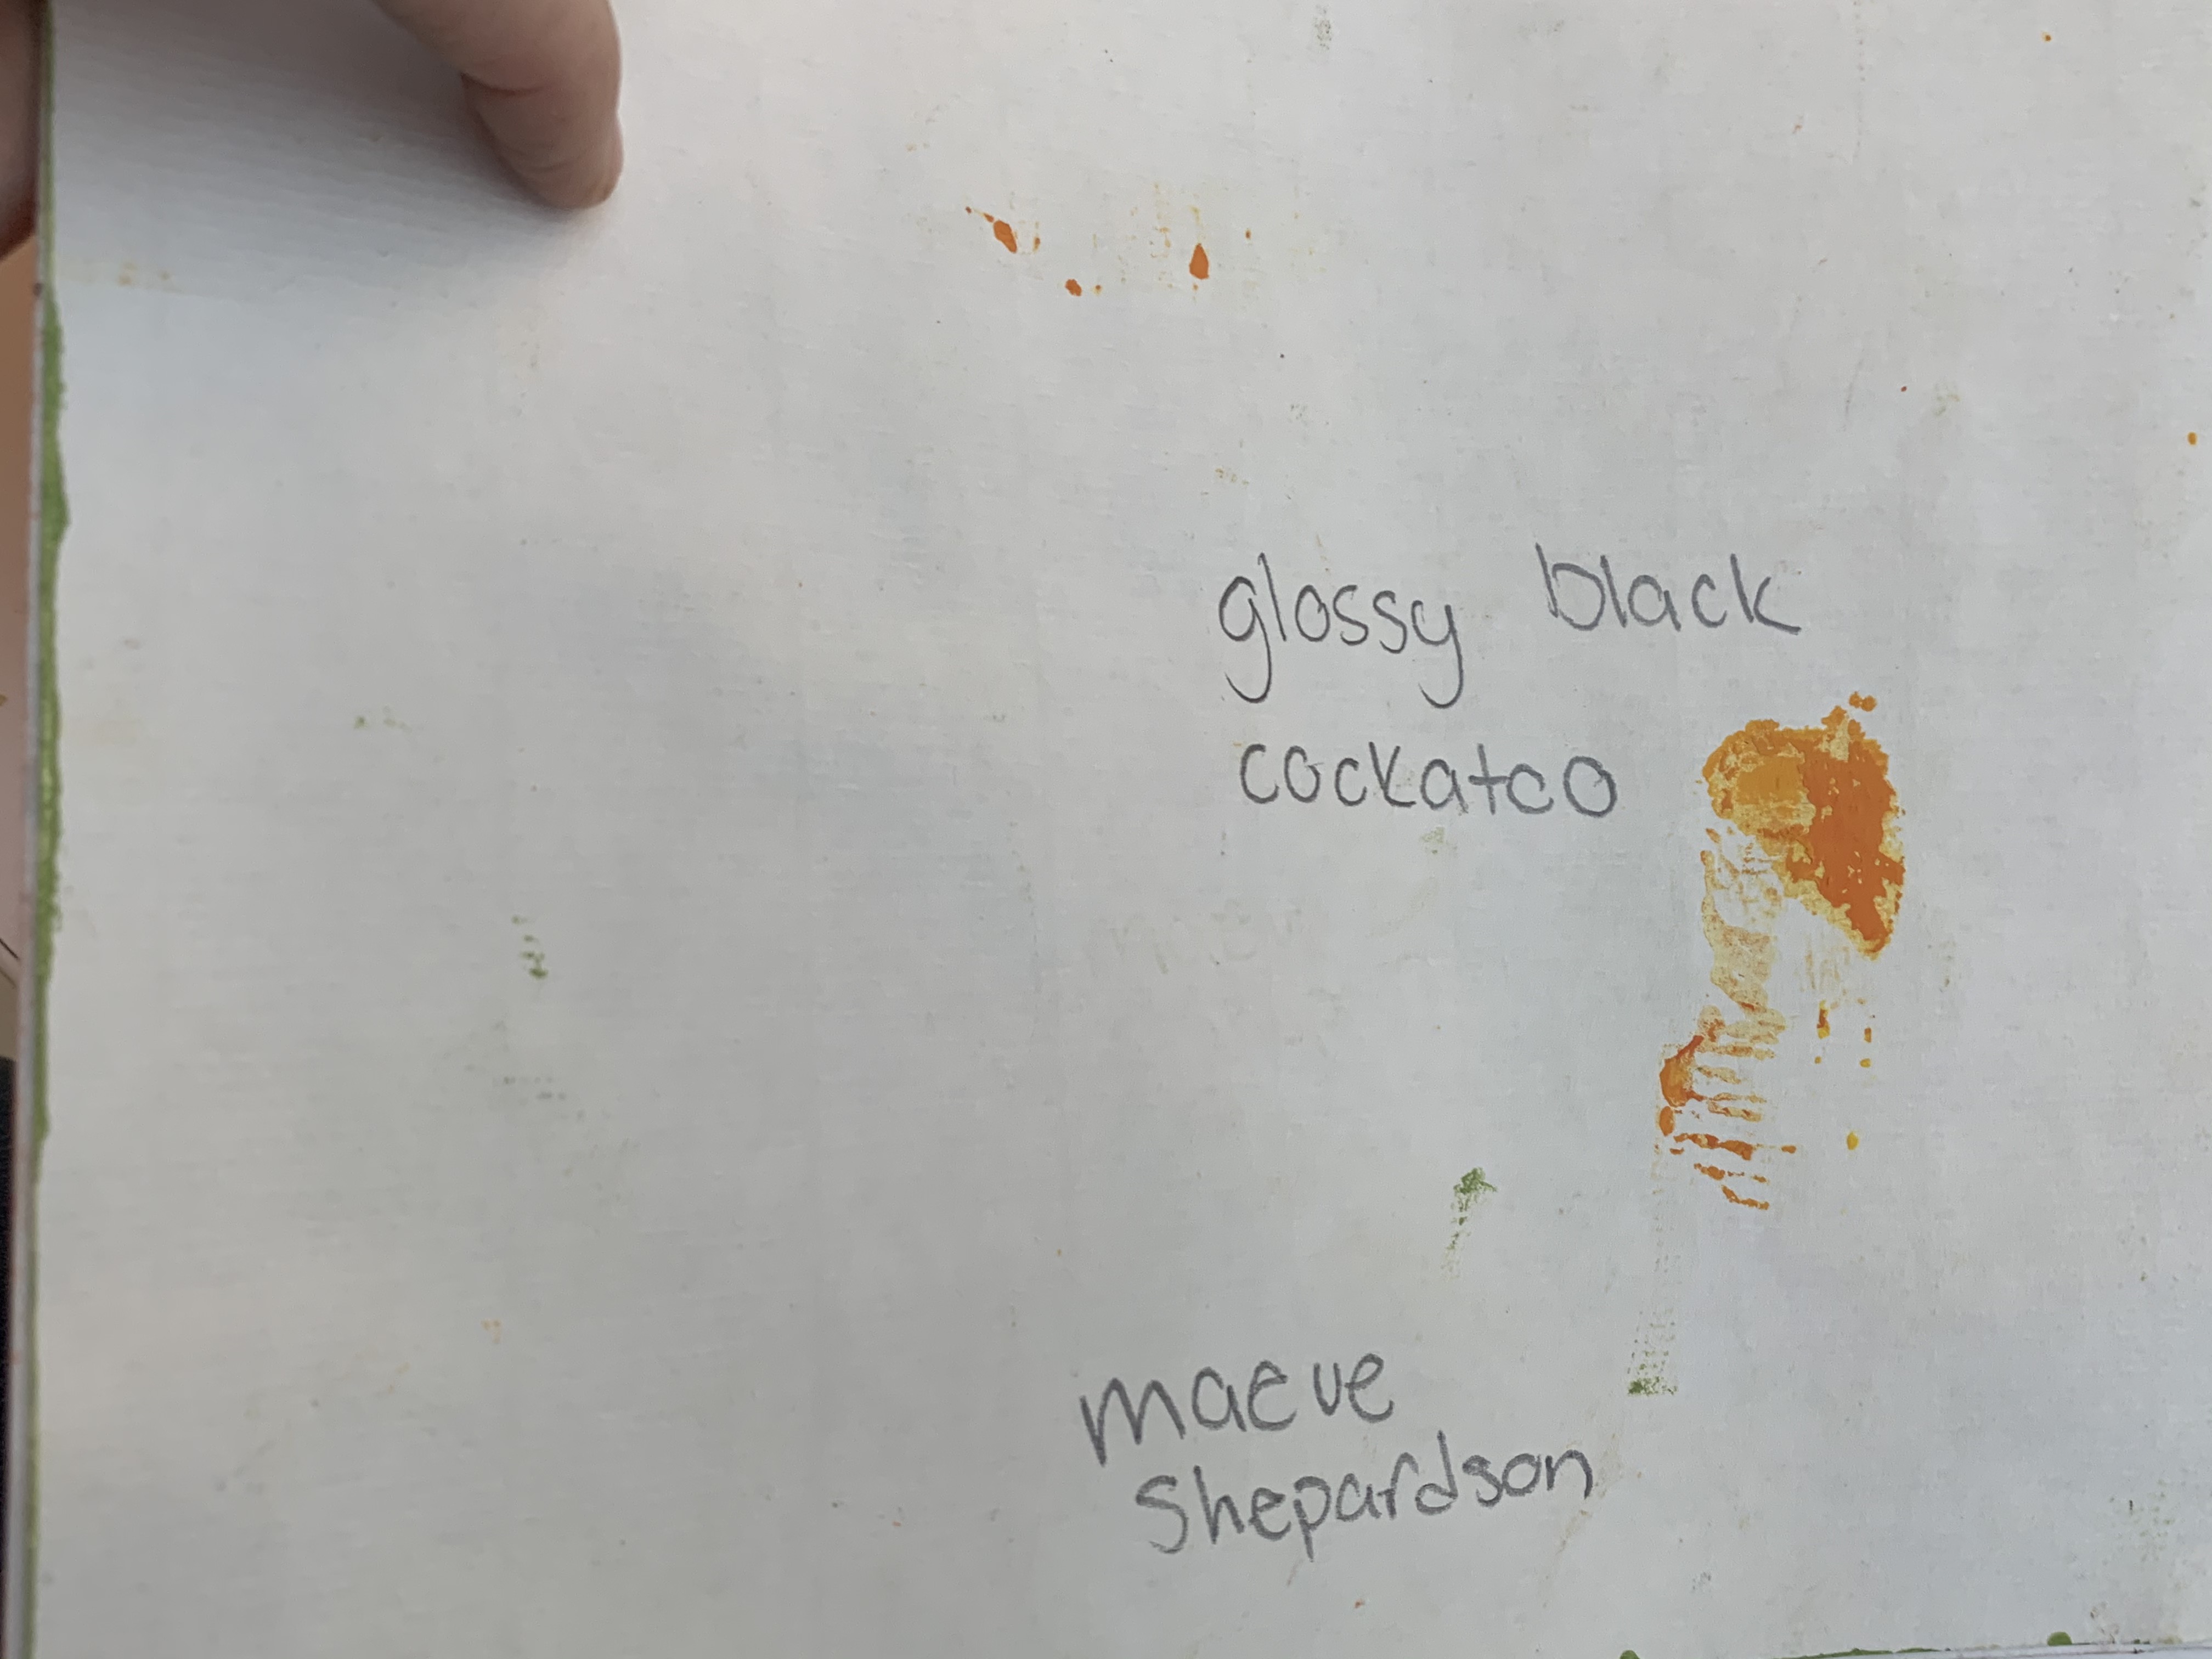 glossy black
cockatoo
Maeve
Shepardson